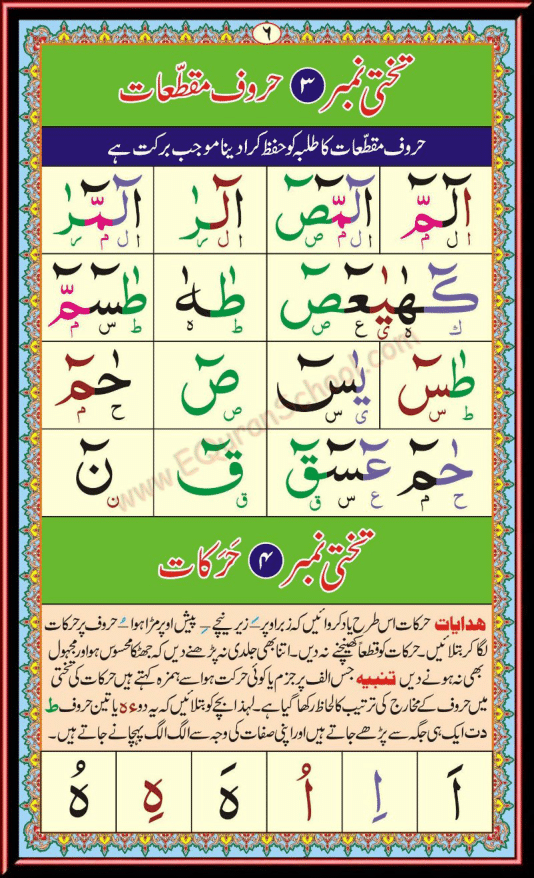 ٦
تختی نمبر ۳ حروف مقطّعات
حروف مقطّعات کا طلبہ کو حفظ کرا دینا موجب برکت ہے
الٓمّٓ الٓمّٓصٓ الٓرٰ الٓمّٓرٰ
ا ل م ا ل م ص ا ل ر ا ل م ر
كٓهٰيٰعٓصٓ طٰهٰ طٰسٓمّٓ
ك ه ي ع ص ط ه ط س م
طٰسٓ يٰسٓ صٓ حٰمٓ
ط س ي س ص ح م
حٰمٓ عٓسٓقٓ قٓ نٓ
ح م ع س ق ق ن
www.EQuranSchool.com
تختی نمبر ۴ حَرَکات
ھدایات حرکات اس طرح یاد کروائیں کہ زبر اوپر ـَ زیر نیچے ـِ پیش اوپر مڑا ہوا ـُ حروف پر حرکات
لگا کر بتلائیں۔ حرکات کو قطعاً کھینچنے نہ دیں۔ اتنا بھی جلدی نہ پڑھنے دیں کہ جھٹکا محسوس ہو اور مجہول
بھی نہ ہونے دیں تنبیہ جس الف پر جزم یا کوئی حرکت ہو اسے ہمزہ کہتے ہیں حرکات کی تختی
میں حروف کے مخارج کی ترتیب کا لحاظ رکھا گیا ہے۔ لہذا بچے کو بتلائیں کہ یہ دو ء ہ یا تین حروف ط
د ت ایک ہی جگہ سے پڑھے جاتے ہیں اور اپنی صفات کی وجہ سے الگ الگ پہچانے جاتے ہیں۔
اَ اِ اُ هَ هِ هُ